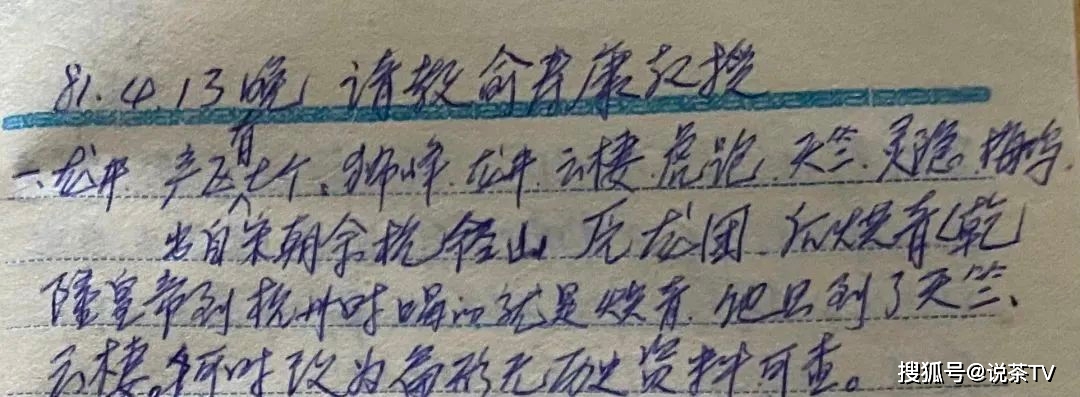 81.4.13晚 请教俞寿康教授
有
一、龙井 产区七个、狮峰.龙井.云栖.虎跑.天竺.灵隐.梅坞.
出自宋朝余杭径山 龙团 后烘青(乾
隆皇帝到杭州时喝的就是烘青.他只到了天竺、
云栖。何时改为扁形无历史资料可查。
搜狐号@说茶TV